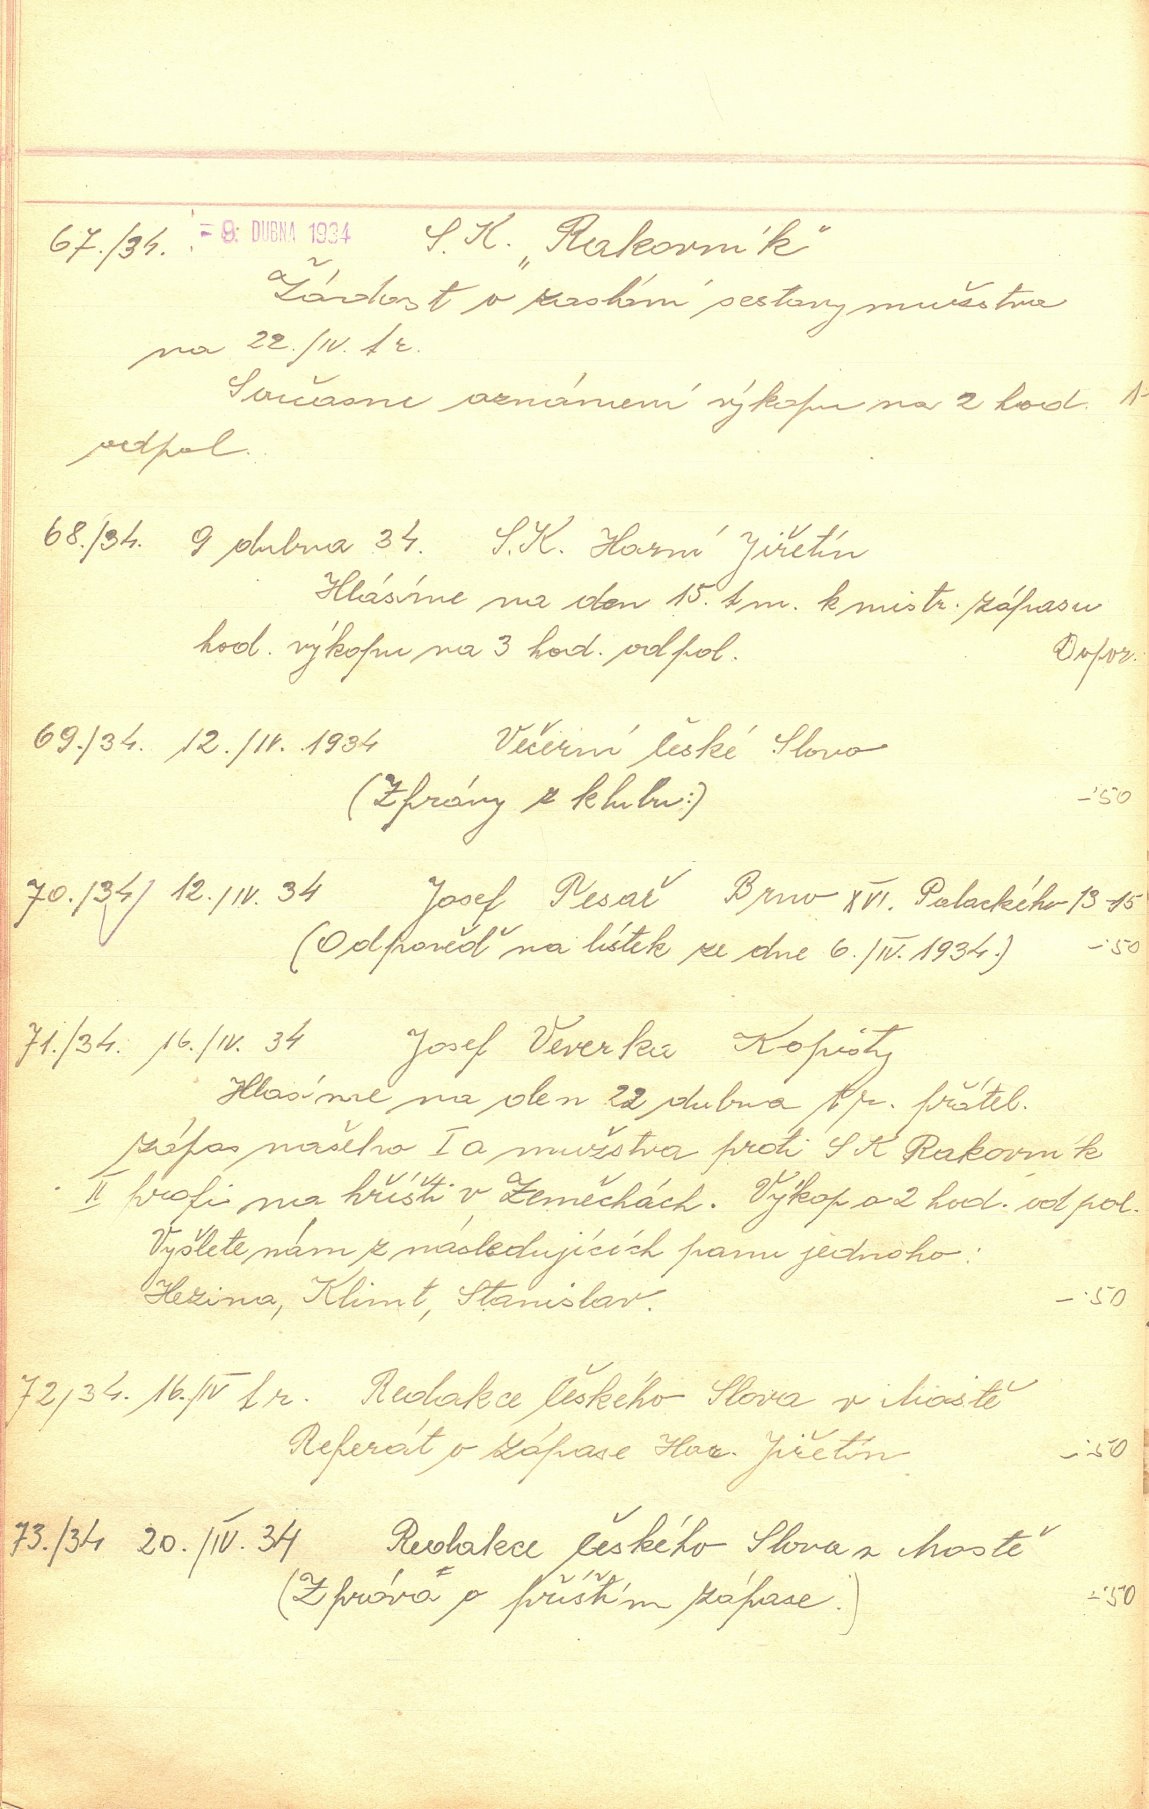 67./34. - 9. DUBNA 1934 S. K. „Rakovník“
Žádost o zaslání sestavy mužstva
na 22./IV. t r.
Současne oznámení výkopu na 2 hod. 1-
odpol.
68./34. 9 dubna 34. S.K. Horní Jiřetín
Hlásíme na den 15. t m. k mistr. zápasu
hod. výkopu na 3 hod. odpol. Dopor.
69./34. 12./IV. 1934 Večerní České Slovo
(Zprávy z klubu:) -·50
70./34/ 12./IV. 34 Josef Tesař Brno XVI. Palackého 13-15
(Odpověď na lístek ze dne 6./IV. 1934.) -·50
71./34. 16./IV. 34 Josef Veverka Kopisty
Hlasíme na den 22 dubna t r. přátel.
zápas našeho I a mužstva proti S K Rakovník
II profi na hřišti v Zeměchách. Výkop o 2 hod. odpol.
Vyšlete nám z následujících panu jednoho:
Hezina, Klimt, Stanislav. -·50
72/34. 16./IV t r. Redakce Českého Slova v Mostě
Referát o zápase Hor. Jiřetín -·50
73./34 20./IV. 34 Redakce Českého Slova v Mostě
(Zpráva o příštím zápase.) -·50